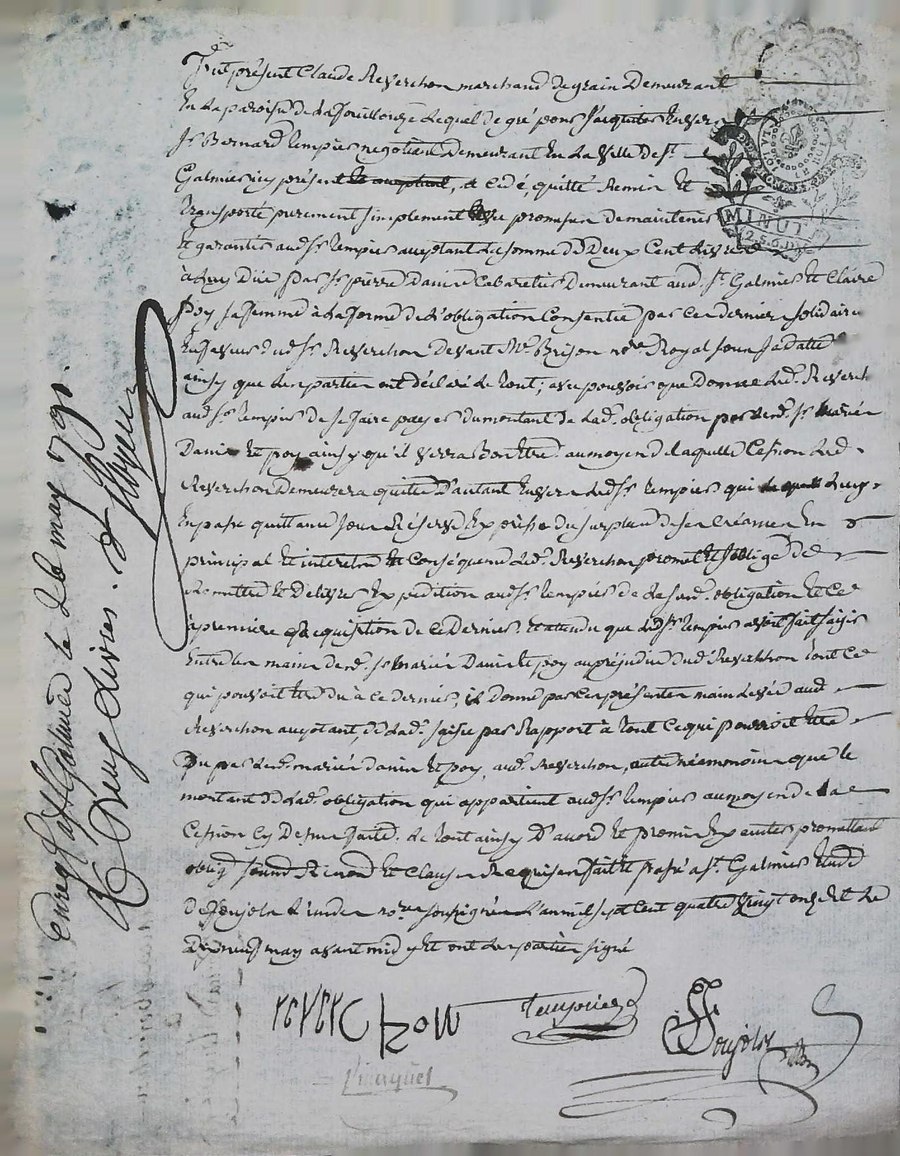 Fut présent Claude Reverchon marchand de grain Demeurant
En la paroisse de la fouillouze Lequel de gré pour s'acquiter Envers
Sr Bernard tempier negotiant Demeurant En La Ville de St
Galmier icy présent et acceptant, a cédé, quitté Remis Et
transporté purement simplement avec promesse de maintenir
Et garantir audt Sr tempier acceptant la somme de Deux Cent Livres
à Luy Due par Sr pierre Danire Cabaretier Demeurant aud. St Galmier Et Claire
poy sa femme à la forme de L'obligation Consentie par ces derniers solidairement
En faveur dudt Sr Reverchon devant Me Brison nore Royal sous sa datte
ainsy que les parties ont déclaré le tout; avec pouvoir que Donne Led. Reverchon
aud. Sr tempier de se faire payer du montant de Lad. obligation par lesd. Sr mariés
Et poy ainsy qu'il verra Bon Etre au moyen de laquelle Cession Led.
Reverchon Demeurera quitte D'autant Envers Ledt Sr tempier qui
En passe quittance sous Réserve Expresse du surplus de ses Créances En
principal Et interets Et Conséquence Led. Reverchon promet Et s'oblige de
Remettre Et Délivrer Expédition audt Sr tempier de La susd. obligation Et Ce
a première Requisition de ce Dernier. Et attendu que Ledt Sr tempier avoit fait saisir
Entre les mains desd. Sr mariés Danire Et poy au préjudice dudt Reverchon tout Ce
qui pouvoit Etre du à ce dernier, il donne par ces présentes main Levée aud
Reverchon acceptant, de Lad. saisie par Rapport à tout Ce qui pouvoit Etre
Du par lesdt mariés danire Et poy, aud. Reverchon, autre néammoins que le
montant de Lad. obligation qui appartient audt Sr tempier au moyen de la
Cession Cy Dessus faite. Le tout ainsy D'acord Et promis Executer promettant
oblig. soum. Renond Et Clauses Requises fait Et passé a St Galmier Etude
de Jenjoles L'un des nores soussignés L'an mil sept Cent quatre Vingt onze Et Le
dix neuf may avant midy Et ont les parties signé
reverchon
tempier
Jenjoles
enregt à St Galmier le 26 may 1791.
R Deux Livres.
MINUTE
LA LOI
LE ROI